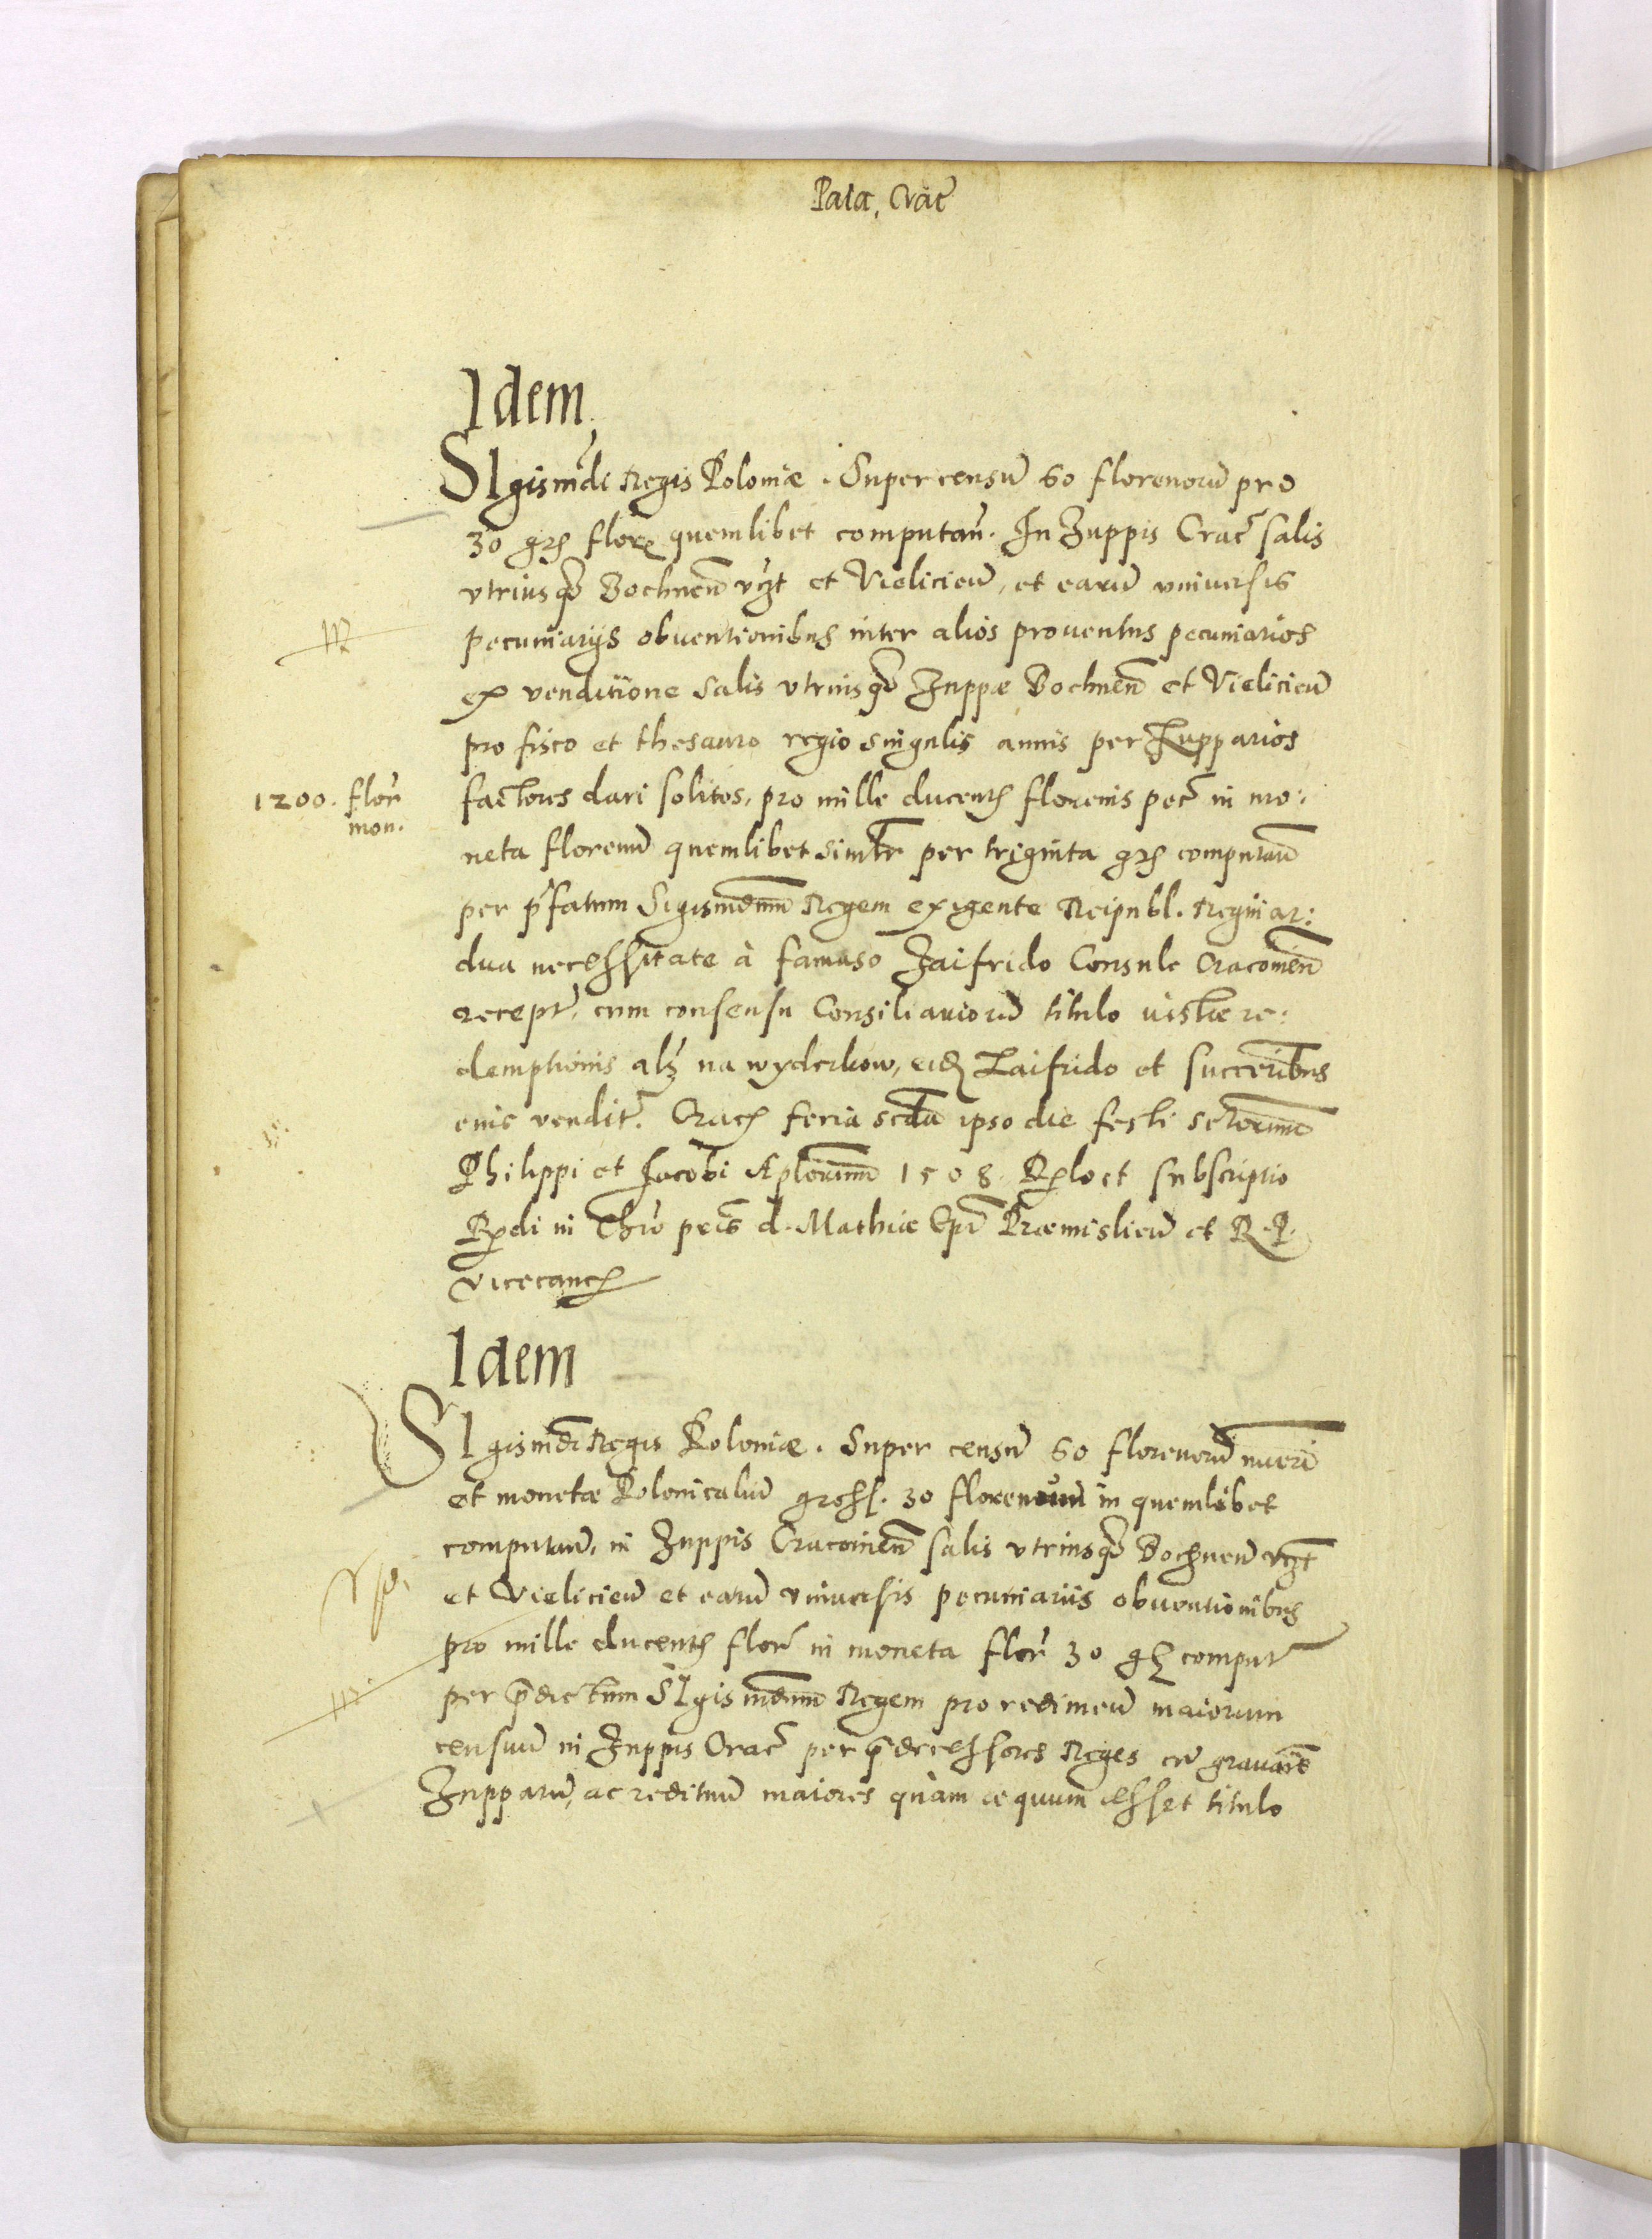 Pala, Crac̃
Idem,
SIgismũdi Regis Poloniæ. Super censũ 60 florenorũ pro
30 grs flore quemlibet computañ. In Zuppis Crac̃ salis
vtriusq; Bochneñ vzt et Vielicieñ, et earũ vniuersis
pecuniarijs obuentionibus inter alios prouentus pecuniarios
ex venditione salis vtriusq; Zuppæ Bochneñ et Vielicieñ
pro fisco et thesauro regio singulis annis per Zupparios
1200. florˀ
mon.
factores dari solitos, pro mille ducents florenis pec̃ in mo:
neta florenũ quemlibet simlr̃ per triginta grs computañ
per p̃fatum Sigismdum̃ Regem exigente Reipubl. Regni ar:
dua necessitate à famaso Zaifrido Consule Cracoinen̄
recept̃, cum consensu Consiliariorũ titulo iustæ re:
demptionis alȝ na wyderkow, eid Zaifrido et succerib̃us
eius vendit̃. Crac feria scd̃a ipso die festi sctorum̃
Philippi et Jacobi Aplorum̃ 1508. Rlo et subscriptio
Rdi in Chrõ pris̃ d. Mathiæ Epĩ Præmislieñ et R. P.
vicecanc
Idem
SIgismdĩ Regis Poloniæ. Super censũ 60 florenorũ nueri
et monetæ Polonicaliũ gross. 30 florenum in quemlibet
computañ, in Zuppis Cracoineñ salis vtriusq; Bochneñ vzt
et Vielicieñ et earũ vniuersis pecuniariis obuentionibus
pro mille ducents florˀ in moneta florˀ 30 gs comput̃
per p̃dictum SIgismdum̃ Regem pro redimeñ maiorum
censuũ in Zuppis Crac̃ per p̃decessores Reges cũ grauaiẽ
Zupparũ, ac redituũ maiores quàm æquum esset titulo